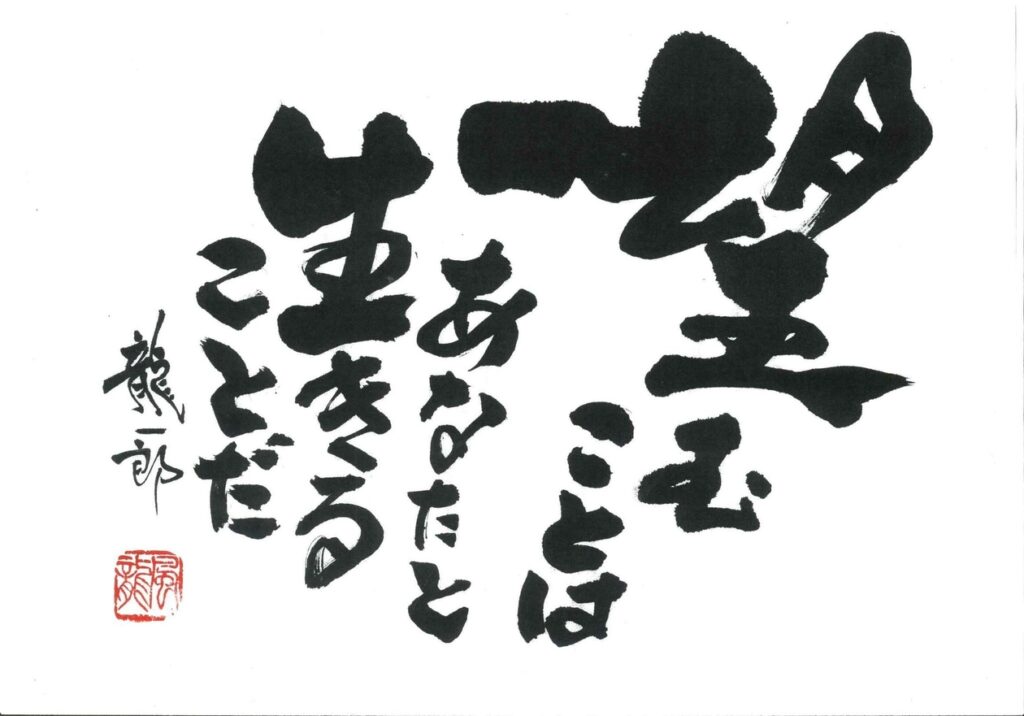 望む
ことは
あなたと
生きる
ことだ
龍一郎
風龍